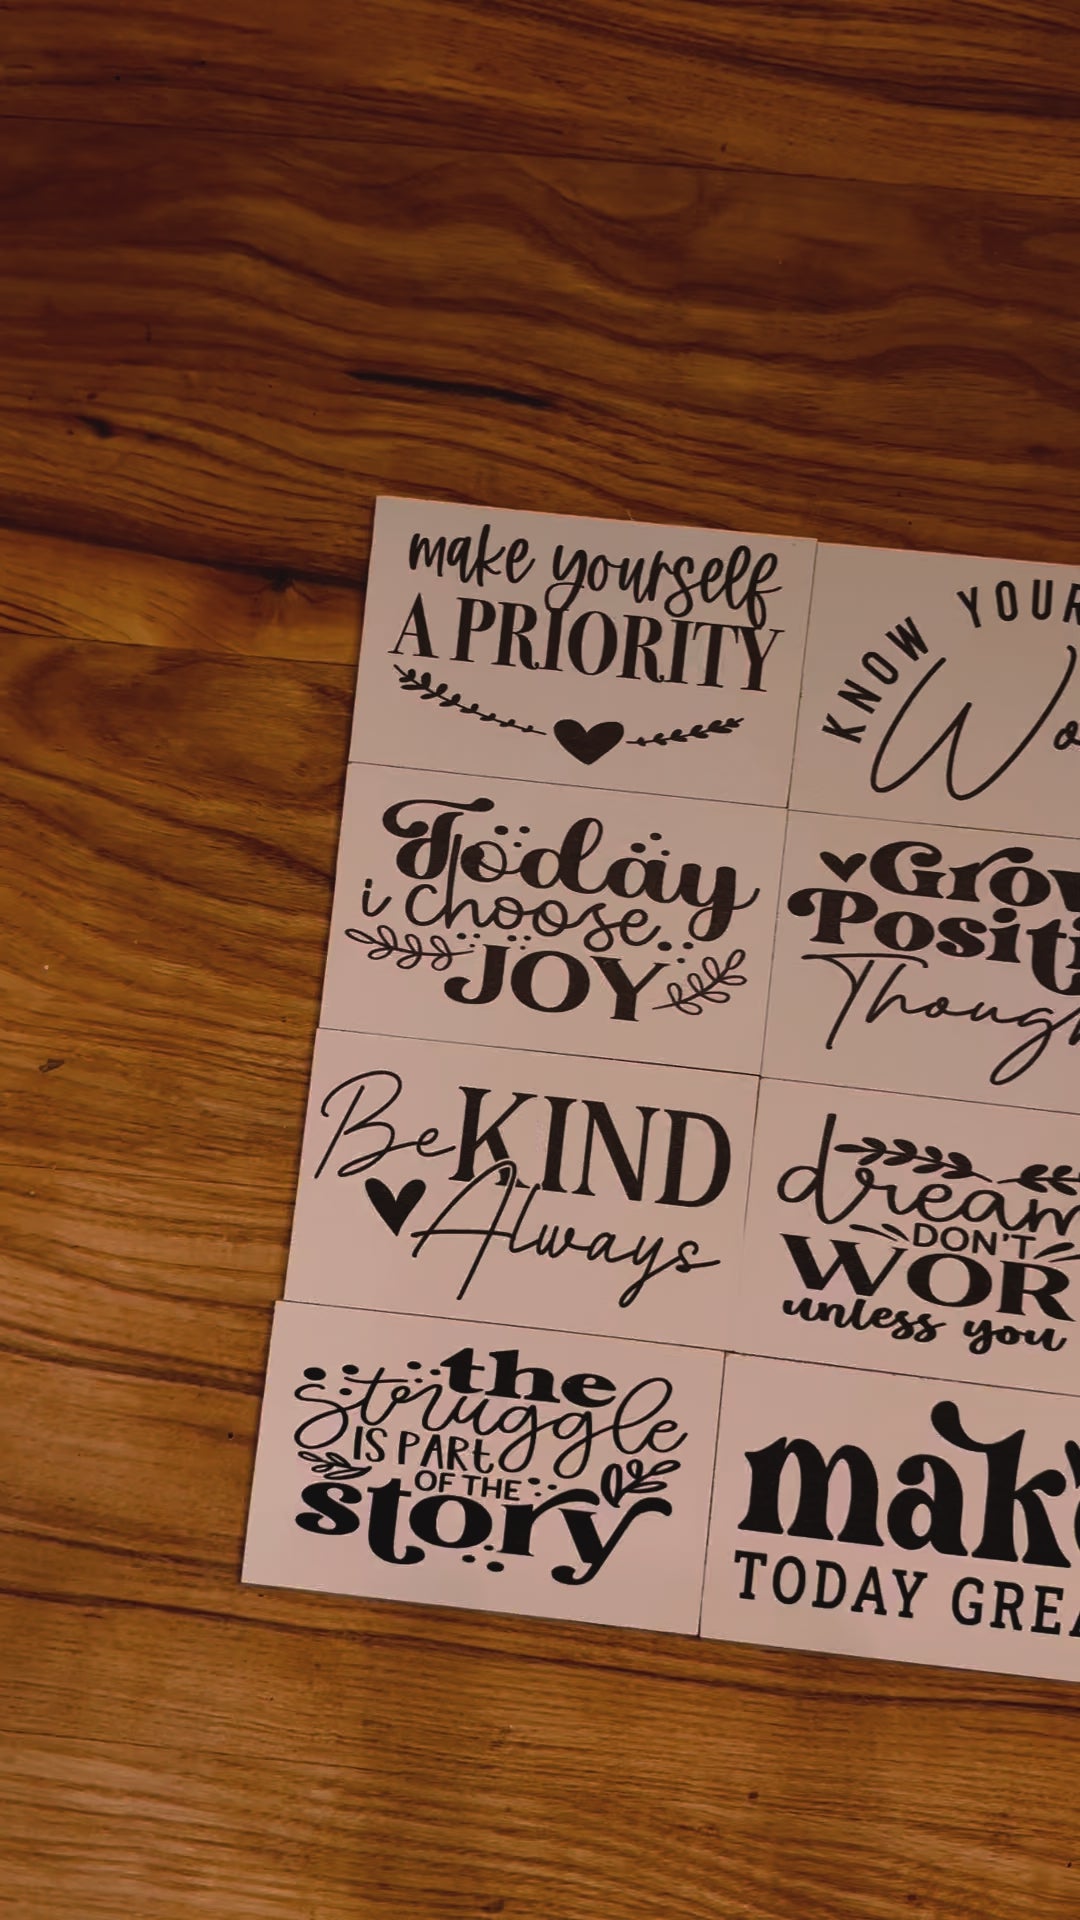 make yourself
A PRIORITY
KNOW YOUR
Today
i choose
JOY
Positi
Be KIND
Always
dream
DON'T
WOR
unless you
the
struggle
IS PART
OF THE
story
make
TODAY GREA